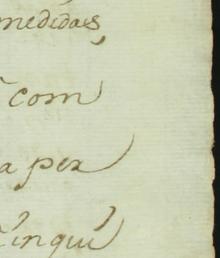 medidas,
com
a per
inqui